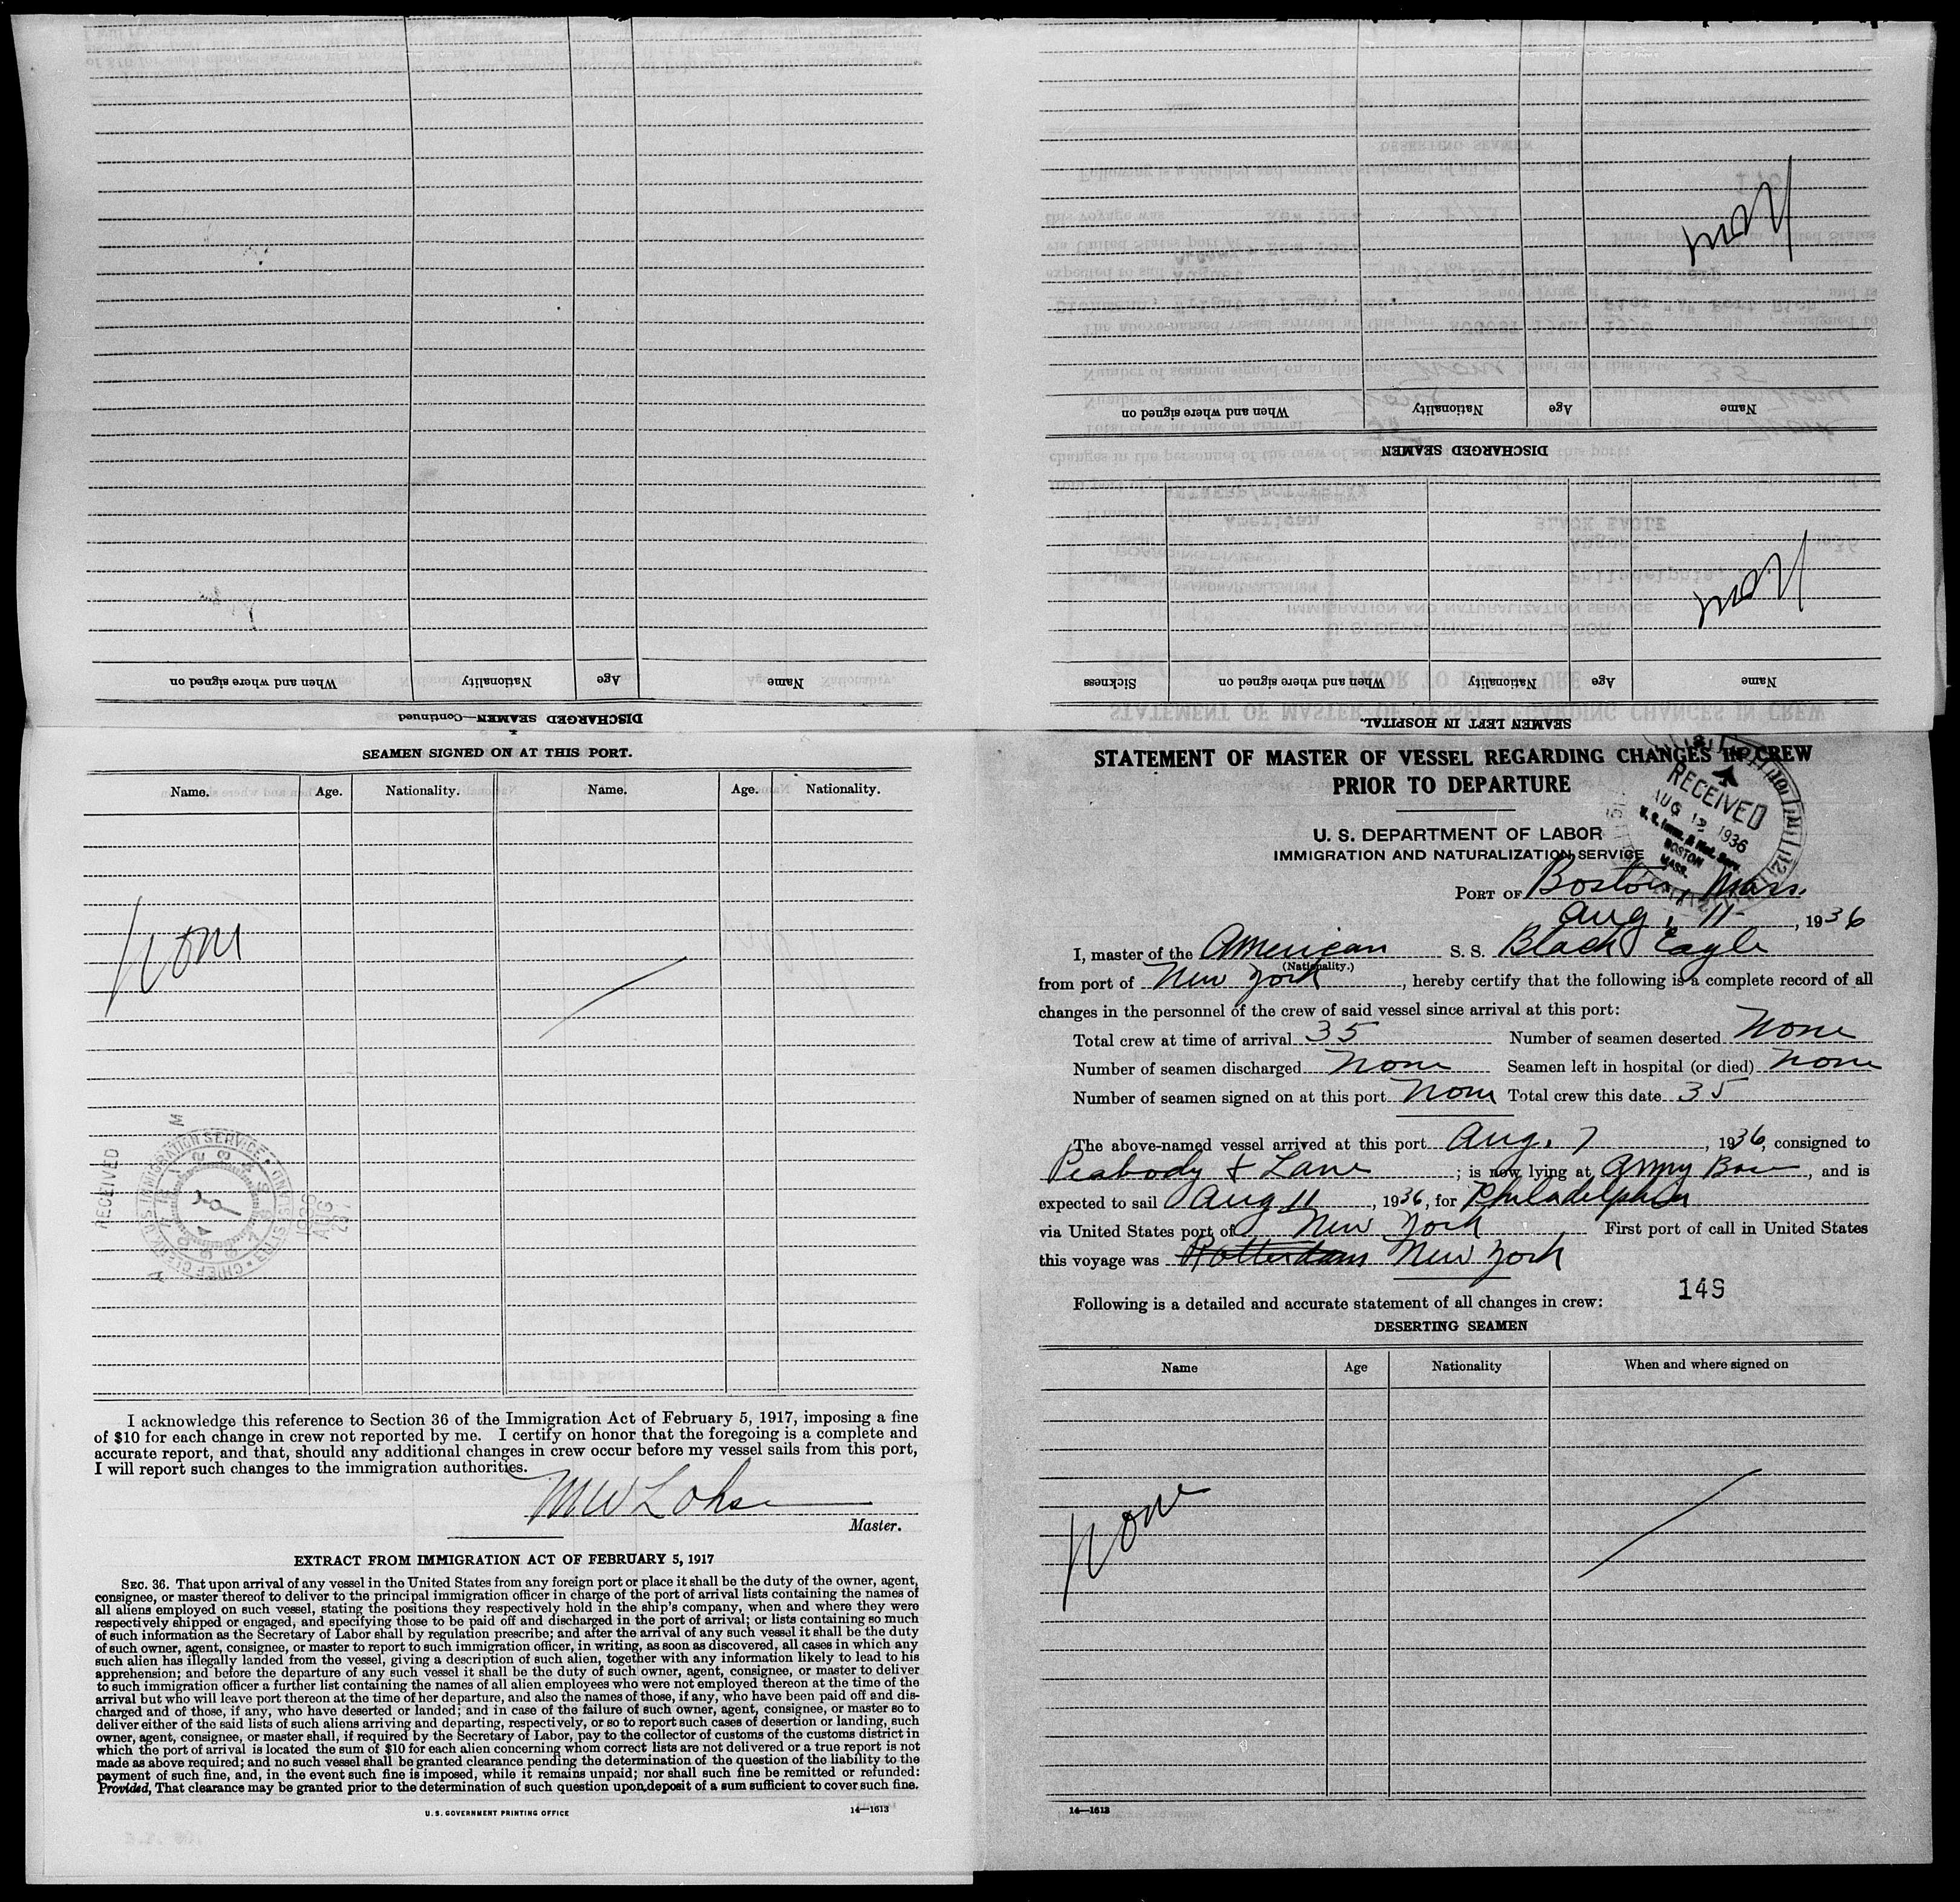 SEAMEN SIGNED ON AT THIS PORT.
Name. Age. Nationality. Name. Age. Nationality.
None
RECEIVED
I acknowledge this reference to Section 36 of the Immigration Act of February 5, 1917, imposing a fine
of $10 for each change in crew not reported by me. I certify on honor that the foregoing is a complete and
accurate report, and that, should any additional changes in crew occur before my vessel sails from this port,
I will report such changes to the immigration authorities.
M W Lohse
Master.
EXTRACT FROM IMMIGRATION ACT OF FEBRUARY 5, 1917
SEC. 36. That upon arrival of any vessel in the United States from any foreign port or place it shall be the duty of the owner, agent,
consignee, or master thereof to deliver to the principal immigration officer in charge of the port of arrival lists containing the names of
all aliens employed on such vessel, stating the positions they respectively hold in the ship's company, when and where they were
respectively shipped or engaged, and specifying those to be paid off and discharged in the port of arrival; or lists containing so much
of such information as the Secretary of Labor shall by regulation prescribe; and after the arrival of any such vessel it shall be the duty
of such owner, agent, consignee, or master to report to such immigration officer, in writing, as soon as discovered, all cases in which any
such alien has illegally landed from the vessel, giving a description of such alien, together with any information likely to lead to his
apprehension; and before the departure of any such vessel it shall be the duty of such owner, agent, consignee, or master to deliver
to such immigration officer a further list containing the names of all alien employees who were not employed thereon at the time of the
arrival but who will leave port thereon at the time of her departure, and also the names of those, if any, who have been paid off and dis-
charged and of those, if any, who have deserted or landed; and in case of the failure of such owner, agent, consignee, or master so to
deliver either of the said lists of such aliens arriving and departing, respectively, or so to report such cases of desertion or landing, such
owner, agent, consignee, or master shall, if required by the Secretary of Labor, pay to the collector of customs of the customs district in
which the port of arrival is located the sum of $10 for each alien concerning whom correct lists are not delivered or a true report is not
made as above required; and no such vessel shall be granted clearance pending the determination of the question of the liability to the
payment of such fine, and, in the event such fine is imposed, while it remains unpaid; nor shall such fine be remitted or refunded:
Provided, That clearance may be granted prior to the determination of such question upon deposit of a sum sufficient to cover such fine.
U. S. GOVERNMENT PRINTING OFFICE 14—1613
STATEMENT OF MASTER OF VESSEL REGARDING CHANGES IN CREW
PRIOR TO DEPARTURE
U. S. DEPARTMENT OF LABOR
IMMIGRATION AND NATURALIZATION SERVICE
RECEIVED
AUG 12 1936
U. S. Imm. & Nat. Serv.
BOSTON
MASS.
PORT OF Boston, Mass.
Aug. 11, 1936
I, master of the American S. S. Black Eagle
(Nationality.)
from port of New York, hereby certify that the following is a complete record of all
changes in the personnel of the crew of said vessel since arrival at this port:
Total crew at time of arrival 35 Number of seamen deserted None
Number of seamen discharged None Seamen left in hospital (or died) None
Number of seamen signed on at this port None Total crew this date 35
The above-named vessel arrived at this port Aug. 7, 1936, consigned to
Peabody & Lane; is now lying at Army Base, and is
expected to sail Aug 11, 1936, for Philadelphia
via United States port of New York First port of call in United States
this voyage was Rotterdam New York
149
Following is a detailed and accurate statement of all changes in crew:
DESERTING SEAMEN
Name Age Nationality When and where signed on
None
14—1613
SEAMEN LEFT IN HOSPITAL.
Name Age Nationality When and where signed on Sickness
None
DISCHARGED SEAMEN
Name Age Nationality When and where signed on
None
DISCHARGED SEAMEN—Continued
Name Age Nationality When and where signed on